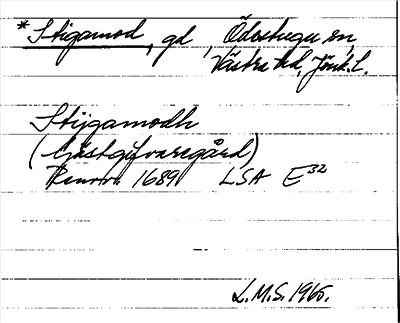 *Stigamod, gd, Ödestugu sn,
Västra hd, Jönk.l.
Stijgamodh
(Gästgifvaregård)
Renov. 1689 LSA E32
L.M.S. 1965.